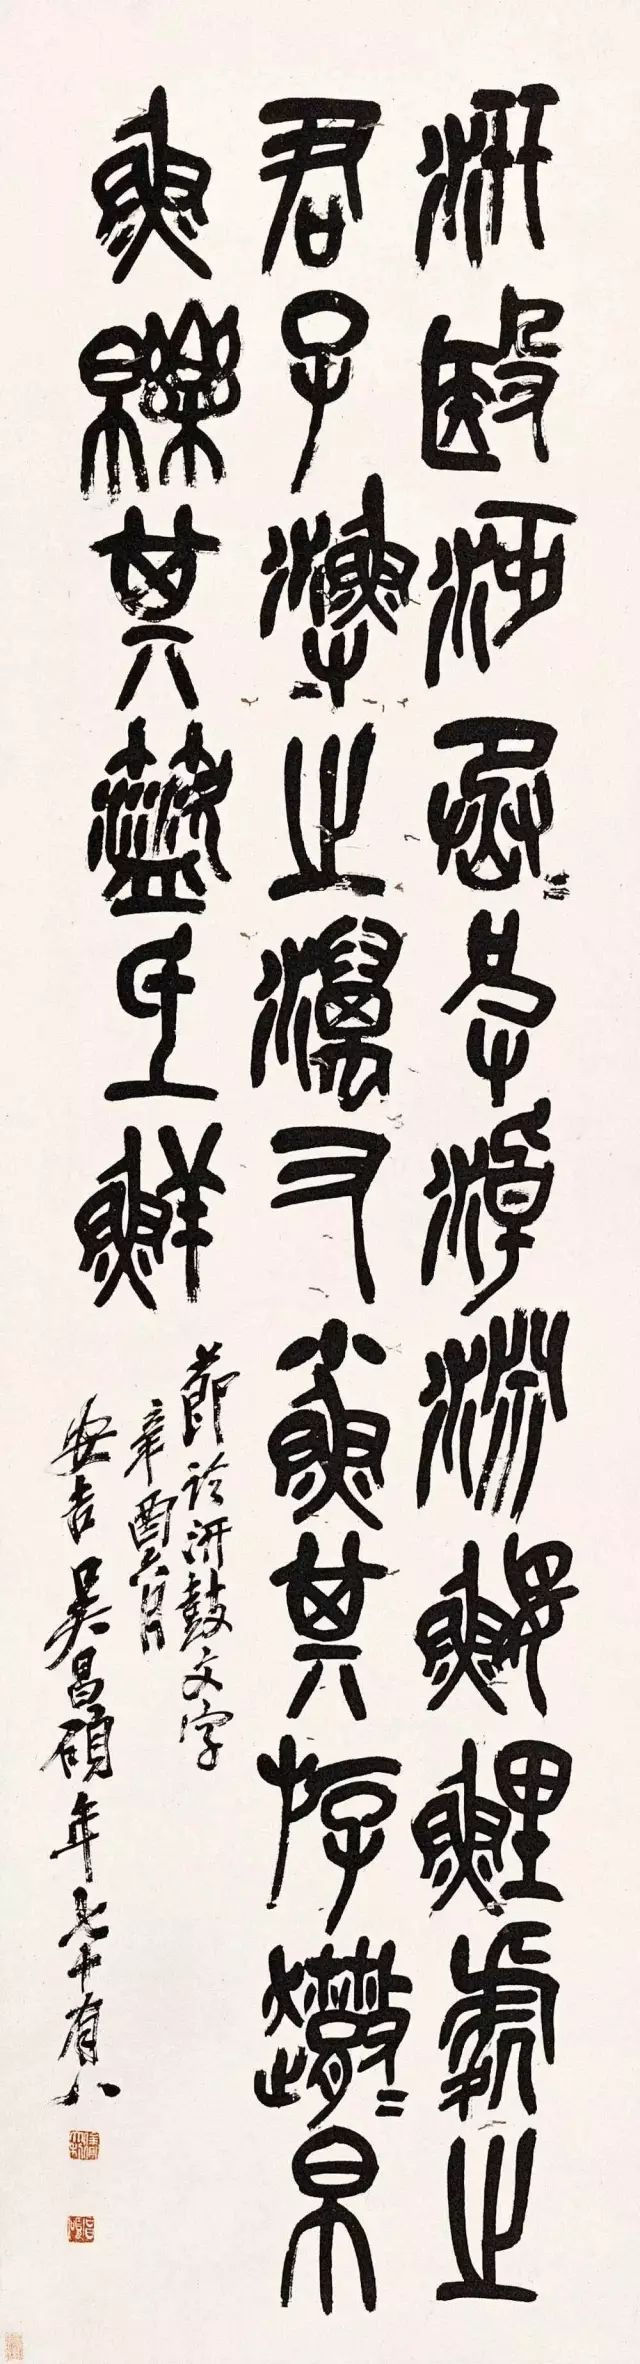 汧殹沔丞皮淖淵鰋鯉處之
君子漁之澫又小魚其斿帛
魚其盜氐鮮
節臨汧鼓文字
辛酉六月
安吉吳昌碩年七十有八